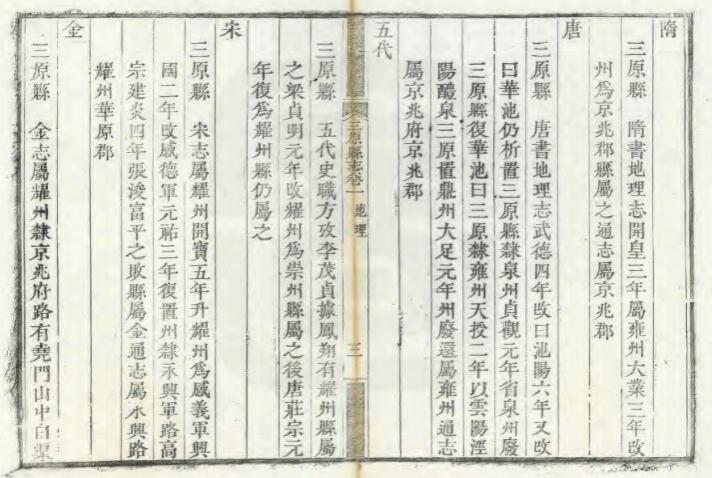 隋
三原縣　隋書地理志開皇三年屬雍州大業三年改
州爲京兆郡縣屬之通志屬京兆郡
唐
三原縣　唐書地理志武德四年改曰池陽六年又改
曰華池仍析置三原縣隸泉州貞觀元年省泉州廢
三原縣復華池曰三原隸雍州天授二年以雲陽涇
陽醴泉三原置鼎州大足元年州廢還屬雍州通志
屬京兆府京兆郡
五代
三原縣　五代史職方攷李茂貞據鳳翔有耀州縣屬
之梁貞明元年改耀州爲崇州縣屬之後唐莊宗元
年復爲耀州縣仍屬之
三原縣志卷一　地理　三
宋
三原縣　宋志屬耀州開寶五年升耀州爲感義軍興
國二年改感德軍元祐三年復置州隸永興軍路高
宗建炎四年張浚富平之敗縣屬金通志屬永興路
耀州華原郡
金
三原縣　金志屬耀州隸京兆府路有堯門山中白渠